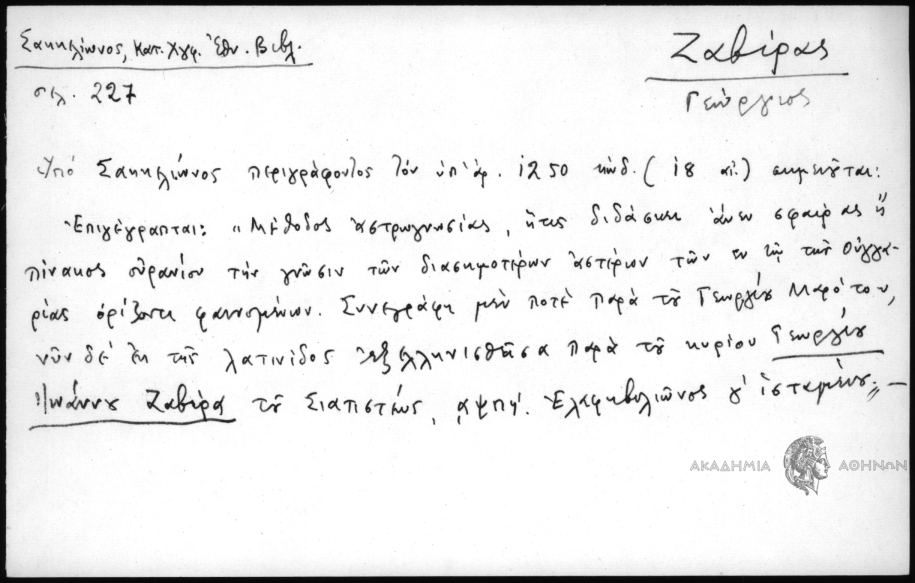 Σακκελίωνος, Κατ. Χγφ. Ἐθν. Βιβλ.
σελ. 227
Ζαβίρας
Γεώργιος
Ὑπὸ Σακκελίωνος περιγράφοντος τὸν ὑπ' ἀρ. 1250 κώδ. (18 αἰ.) σημειοῦται:
Ἐπιγέγραπται: "Μέθοδος ἀστρωγνωσίας, ἥτις διδάσκει ἄνευ σφαίρας ἢ
πίνακος οὐρανίου τὴν γνῶσιν τῶν διασημοτέρων ἀστέρων τῶν ἐν τῷ τῆς Οὐγγα-
ρίας ὁρίζοντι φαινομένων. Συνεγράφη μὲν ποτὲ παρὰ τοῦ Γεωργίου Μαρότου,
νῦν δὲ ἐκ τῆς λατινίδος ἐξελληνισθεῖσα παρὰ τοῦ κυρίου Γεωργίου
Ἰωάννου Ζαβίρα τοῦ Σιαπιστέως, ͵αψπγʹ. Ἐλαφηβολιῶνος γʹ ἱσταμένου".—
ΑΚΑΔΗΜΙΑ ΑΘΗΝΩΝ